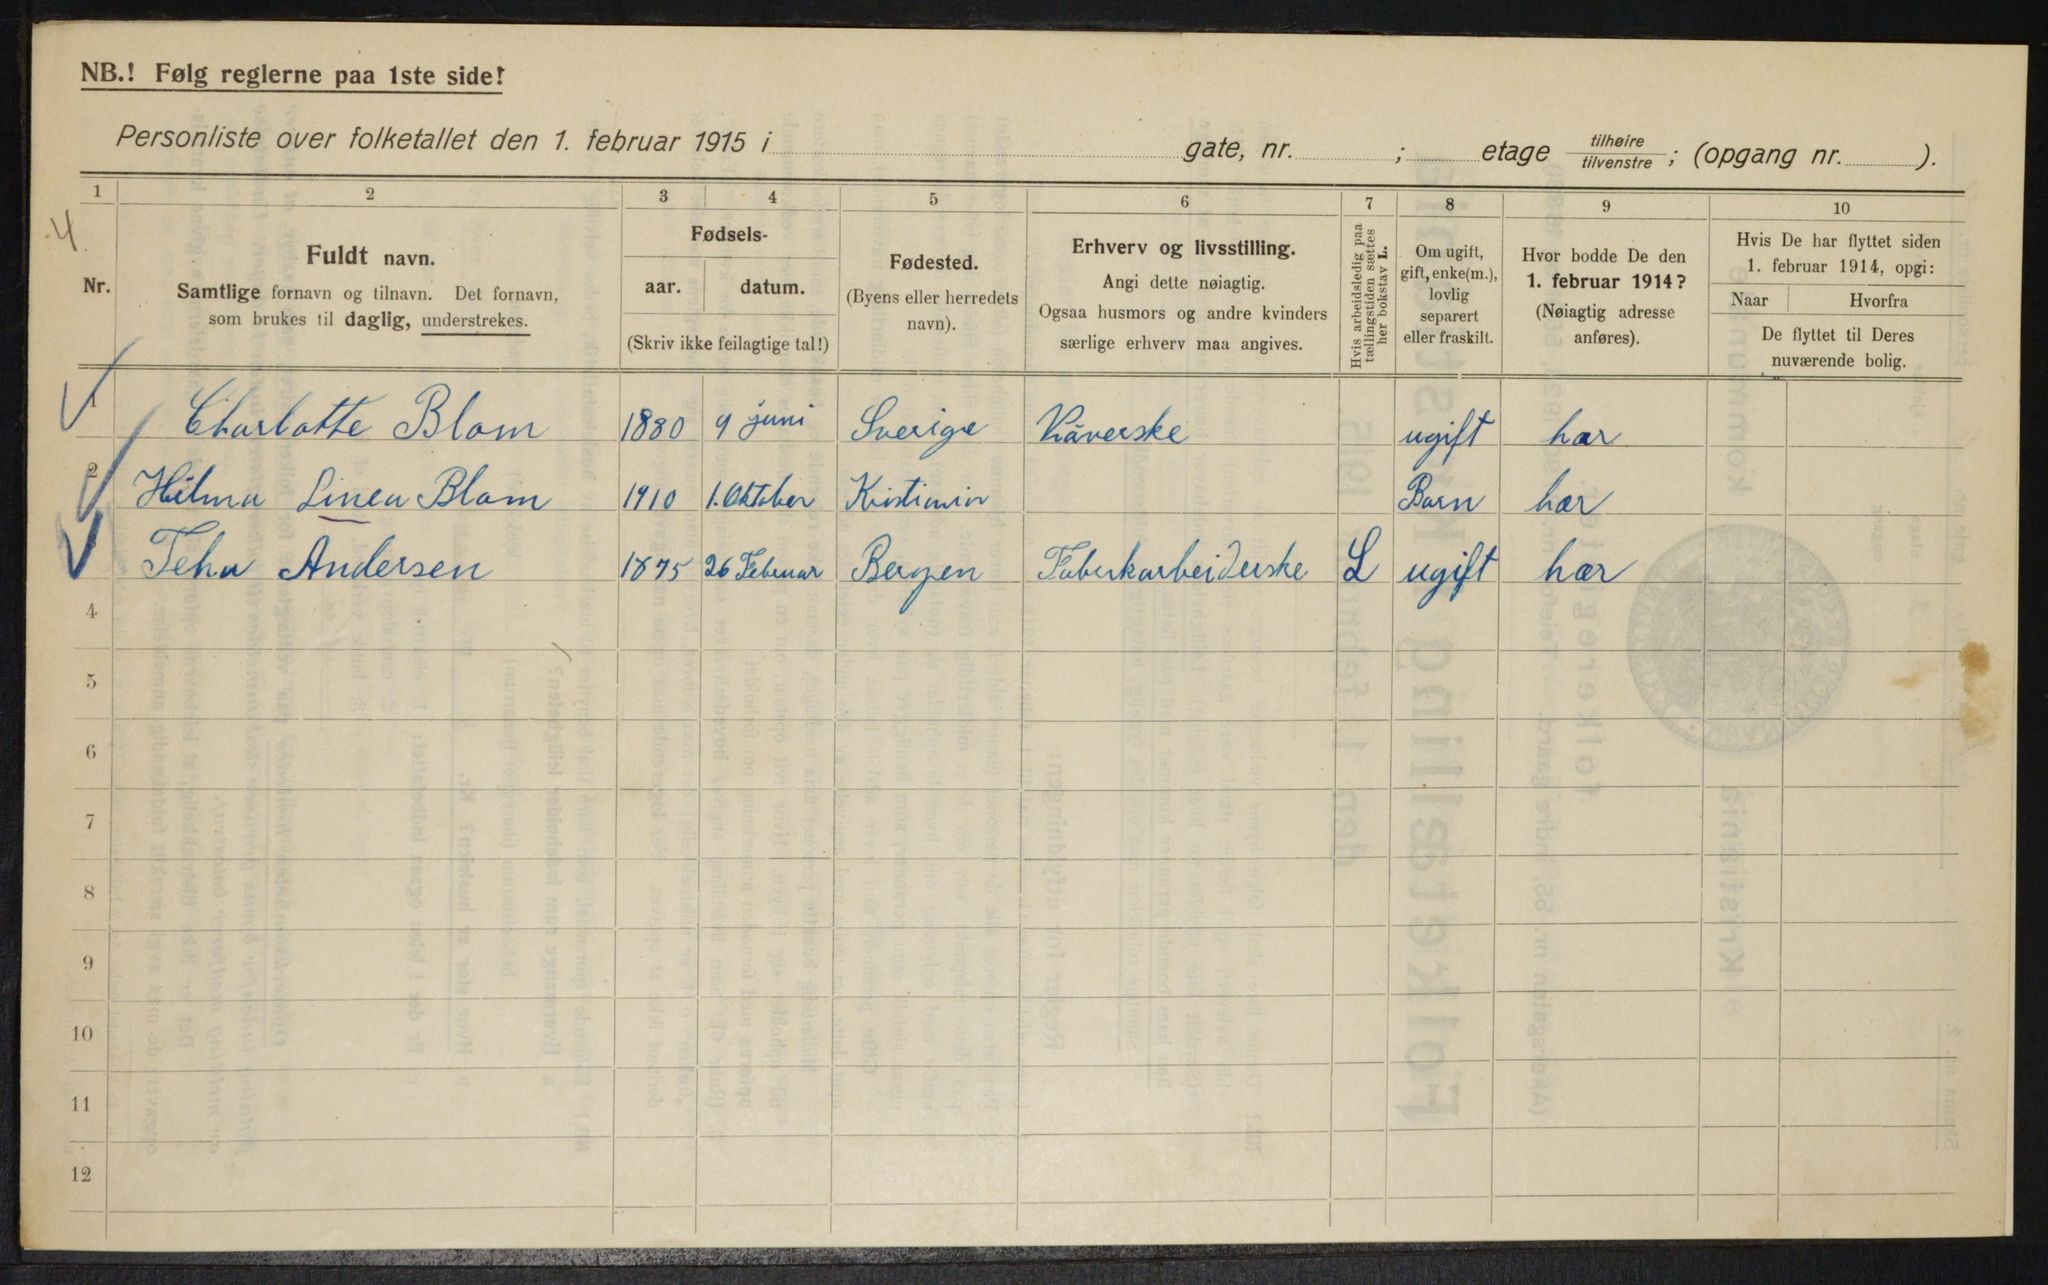 NB.! Følg reglerne paa 1ste side!
Personliste over folketallet den 1. februar 1915 i gate, nr. ; etage tilhøire tilvenstre ; (opgang nr. ).
1 2 3 4 5 6 7 8 9 10
4
Nr.
Fuldt navn.
Samtlige fornavn og tilnavn. Det fornavn,
som brukes til daglig, understrekes.
Fødsels-
aar. datum.
(Skriv ikke feilagtige tal!)
Fødested.
(Byens eller herredets
navn).
Erhverv og livsstilling.
Angi dette nøiagtig.
Ogsaa husmors og andre kvinders
særlige erhverv maa angives.
Hvis arbeidsledig paa
tællingstiden sættes
her bokstav L.
Om ugift,
gift, enke(m.),
lovlig
separert
eller fraskilt.
Hvor bodde De den
1. februar 1914?
(Nøiagtig adresse
anføres).
Hvis De har flyttet siden
1. februar 1914, opgi:
Naar Hvorfra
De flyttet til Deres
nuværende bolig.
1 Charlotte Blom 1880 9 juni Sverige Væverske ugift hær
2 Hilma Linea Blom 1910 1. Oktober Barn hær
Andersen 1875 26 Februar Bergen L ugift hær
4
5
6
7
8
9
10
11
12